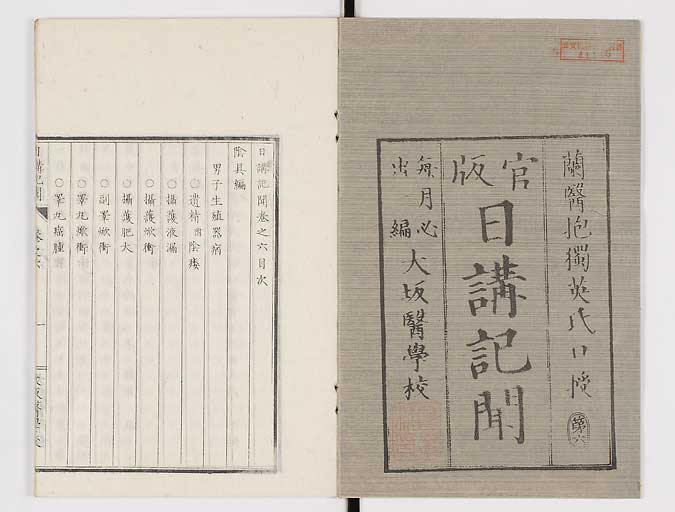 蘭醫抱獨英氏口授
第六
官版
日講記聞
每月必
出編
大坂醫學校
日講記聞卷之六目次
陰具編
男子生殖器病
○遺精
○攝護液漏
○攝護焮衝
○攝護肥大
○副睪焮衝
○睪丸焮衝
○睪丸癌腫